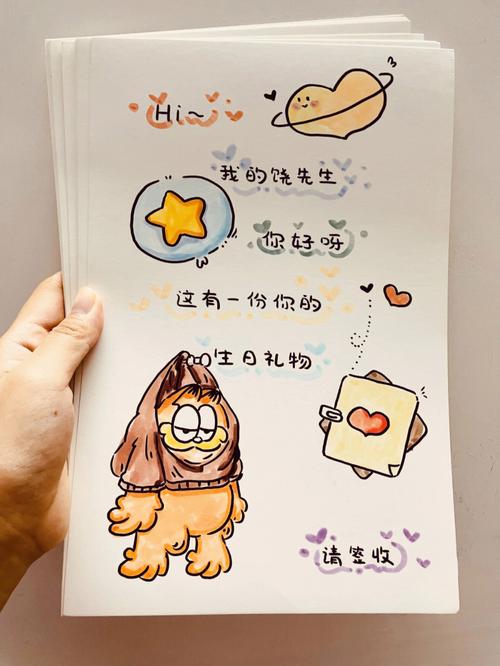 Hi~
我的饶先生
你好呀
这有一份你的
生日礼物
请签收